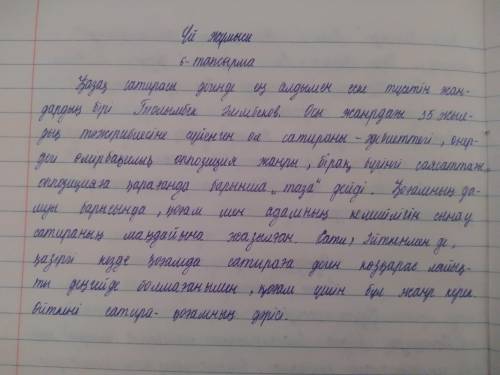 Үй жұмысы
6-тапсырма
Қазақ сатирасы дегенде ең алдымен еске түсетін жан-
дардың бірі Ғабдол Осы жанрдағы 35 жыл-
дық тәжірибесіне сүйенген ол сатираны - әдебиеттегі, өнер-
дегі оппозиция жанры, бірақ бүгінгі саясаттағы
оппозицияға қарағанда барынша "таза" дейді. Қоғамның да-
му барысында, қоғам мен адамның кемшілігін сынау
сатираның маңдайына жазылған. Сати; Әйткенмен де,
қазіргі кезде қоғамда сатираға деген көзқарас лайық-
ты деңгейде болмағанымен, қоғам үшін бұл жанр керек.
Өйткені сатира - қоғамның дәрісі.